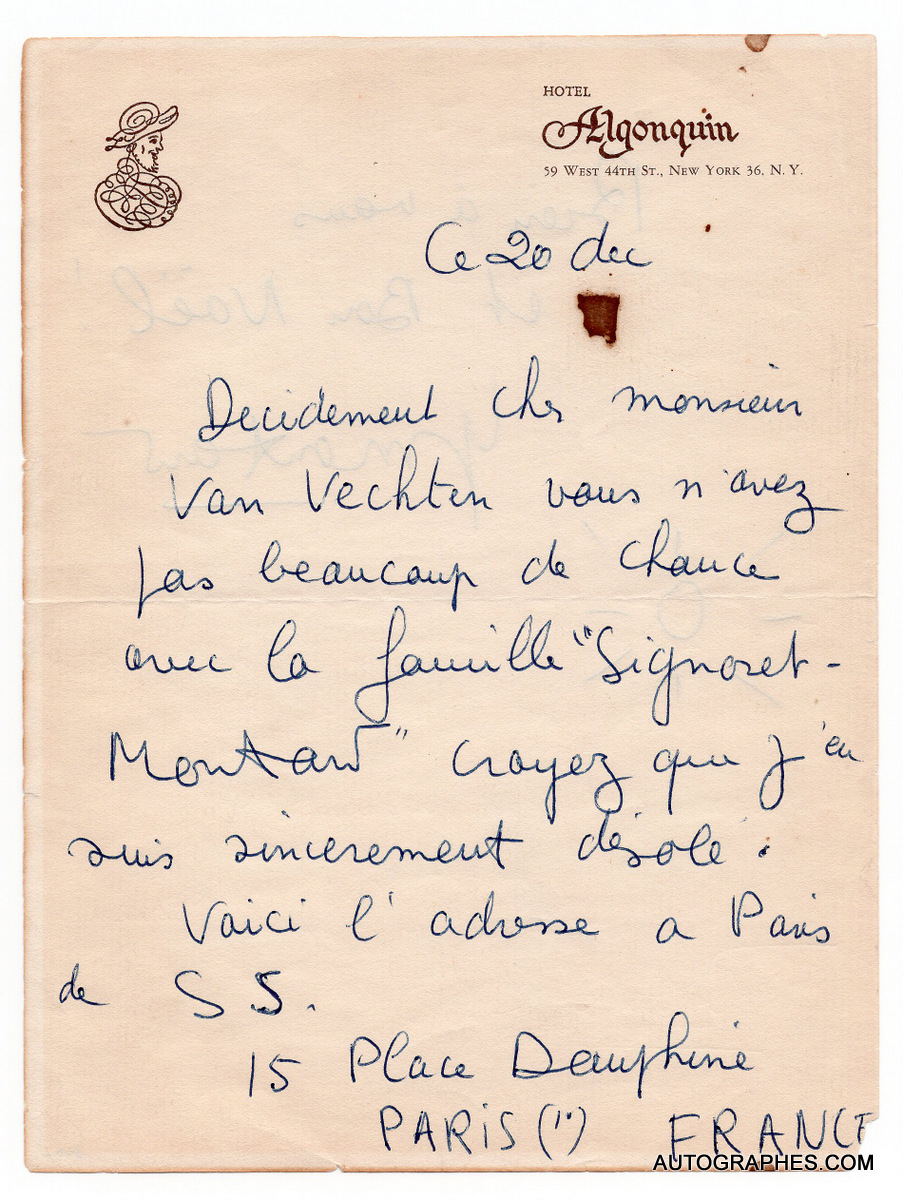 HOTEL
Algonquin
59 WEST 44TH ST., NEW YORK 36, N. Y.
Ce 20 dec
Decidement cher monsieur
Van Vechten vous n'avez
pas beaucoup de chance
avec la famille "Signoret-
Montand" croyez que j'en
suis sincerement désolé.
Voici l'adresse a Paris
de S S.
15 Place Dauphine
PARIS (1º) FRANCE
AUTOGRAPHES.COM